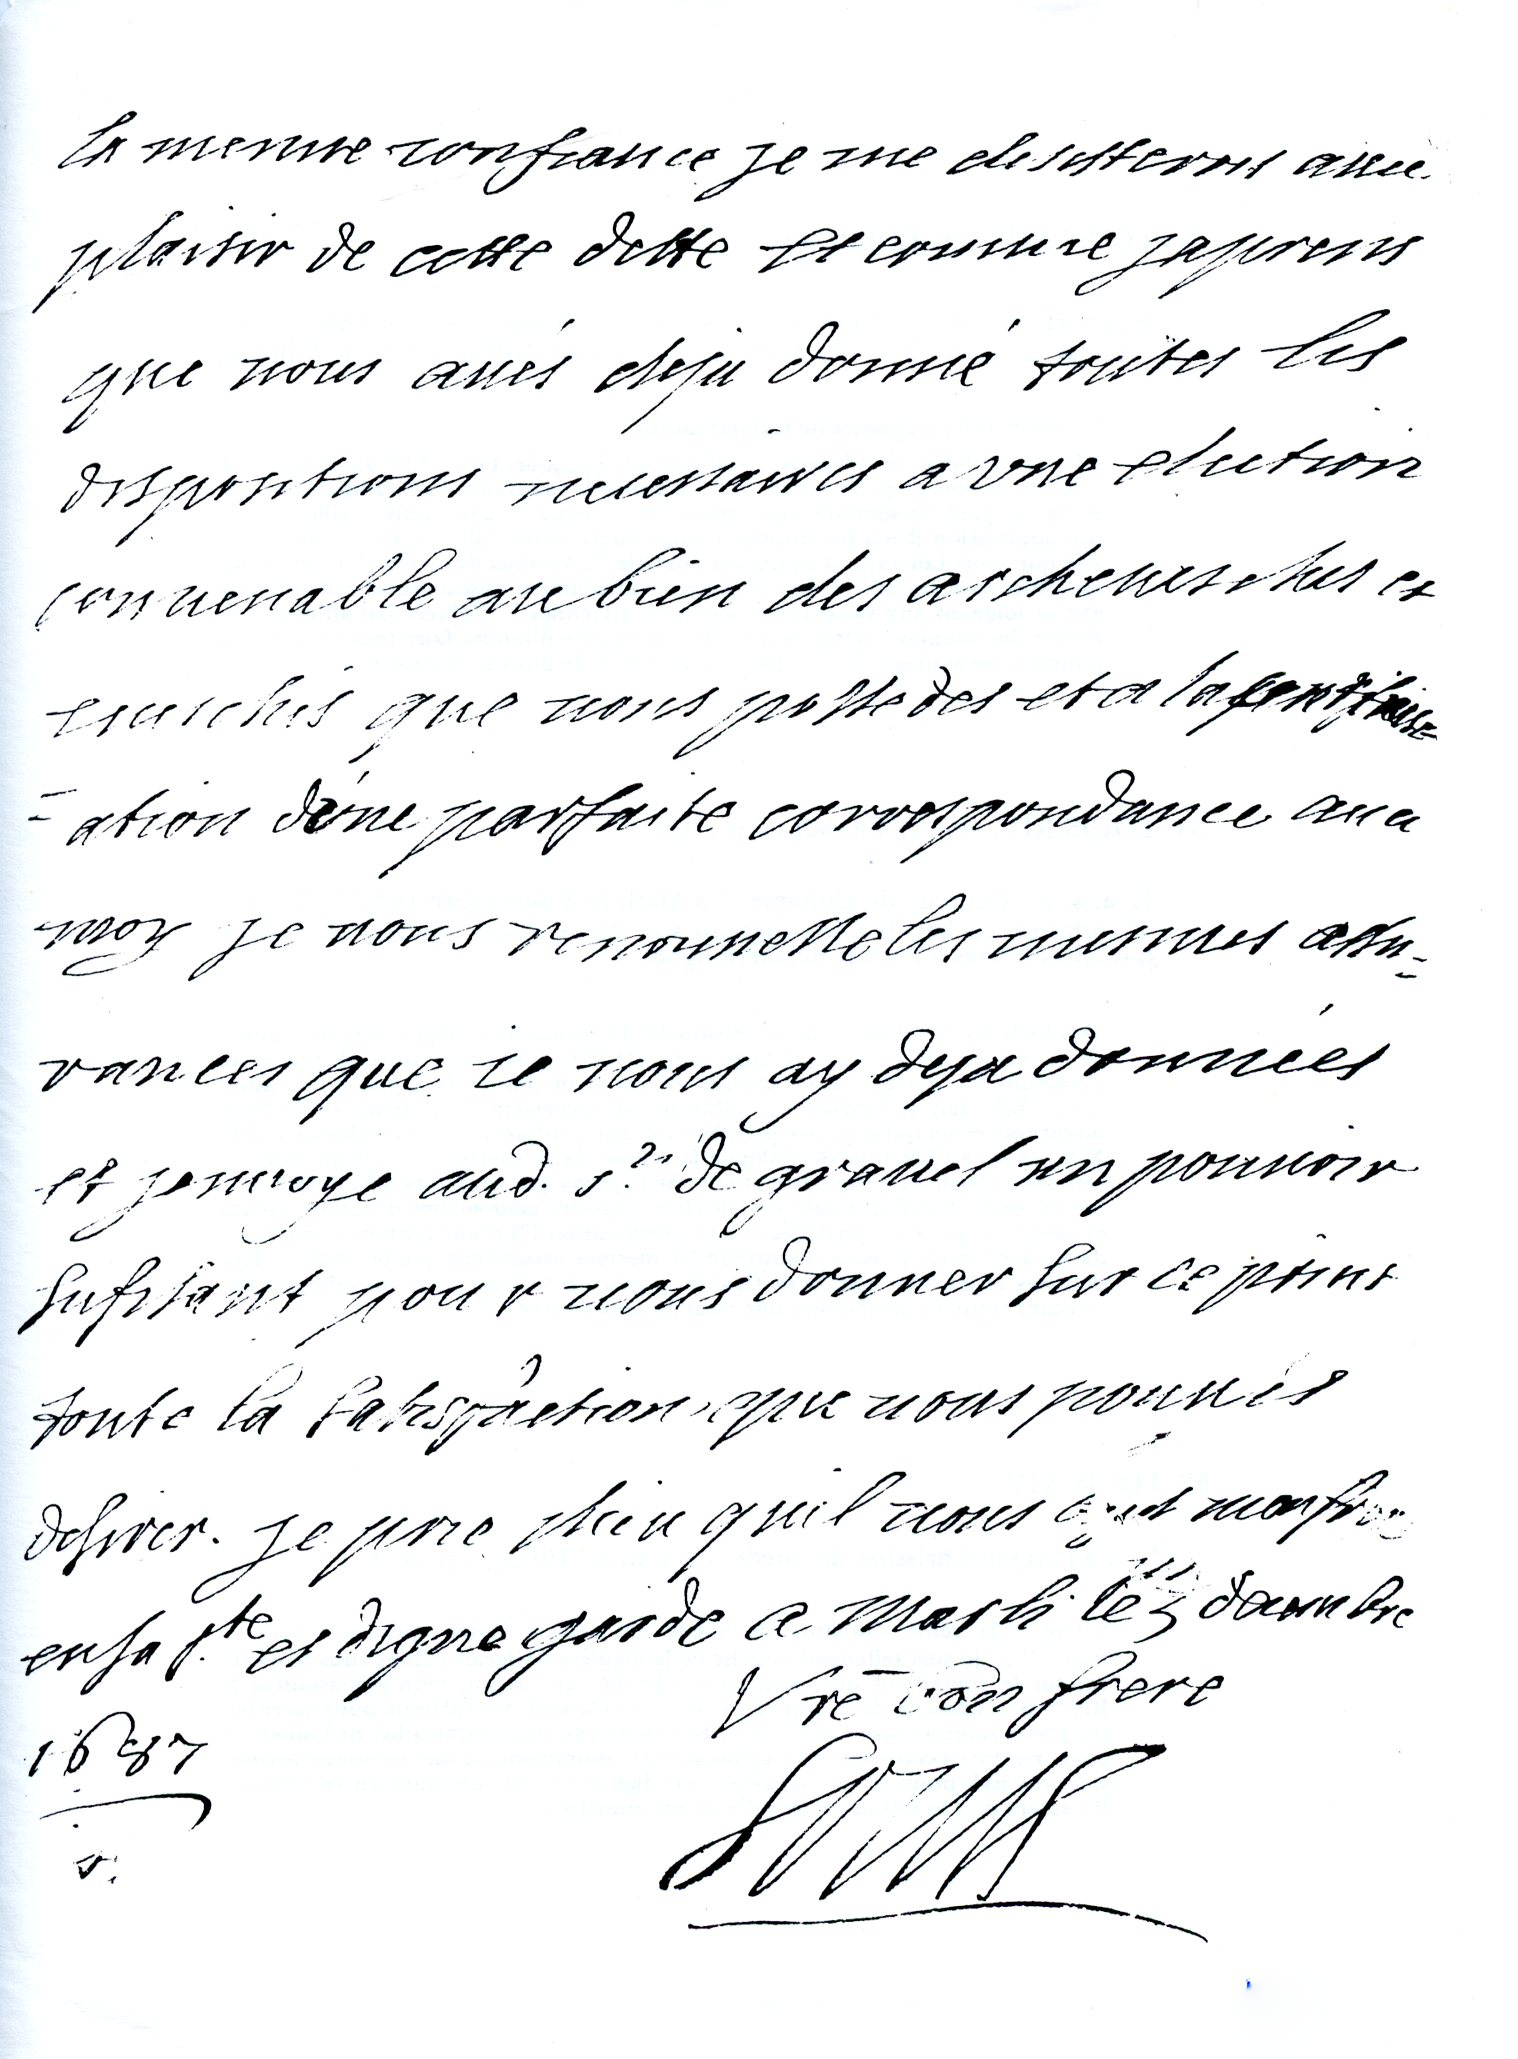 la mesme confiance je me desisterois avec
plaisir de cette dette et comme japrens
que vous avés deja donné toutes les
dispositions necessaires a une election
convenable au bien des archeveschés et
eveschés que vous possedés et a la
=ation d'une parfaite correspondance avec
moy je vous renouvelle les mesmes assu=
rances que je vous ay deja données
et jenvoye aud. sr. de gravel un pouvoir
sufisant pour vous donner sur ce point
toute la satisfaction que vous pouvés
desirer. je prie dieu quil vous ayt mon frere
en sa ste et digne garde a Marli le 3 decembre
Vre bon frere
1687
Louis